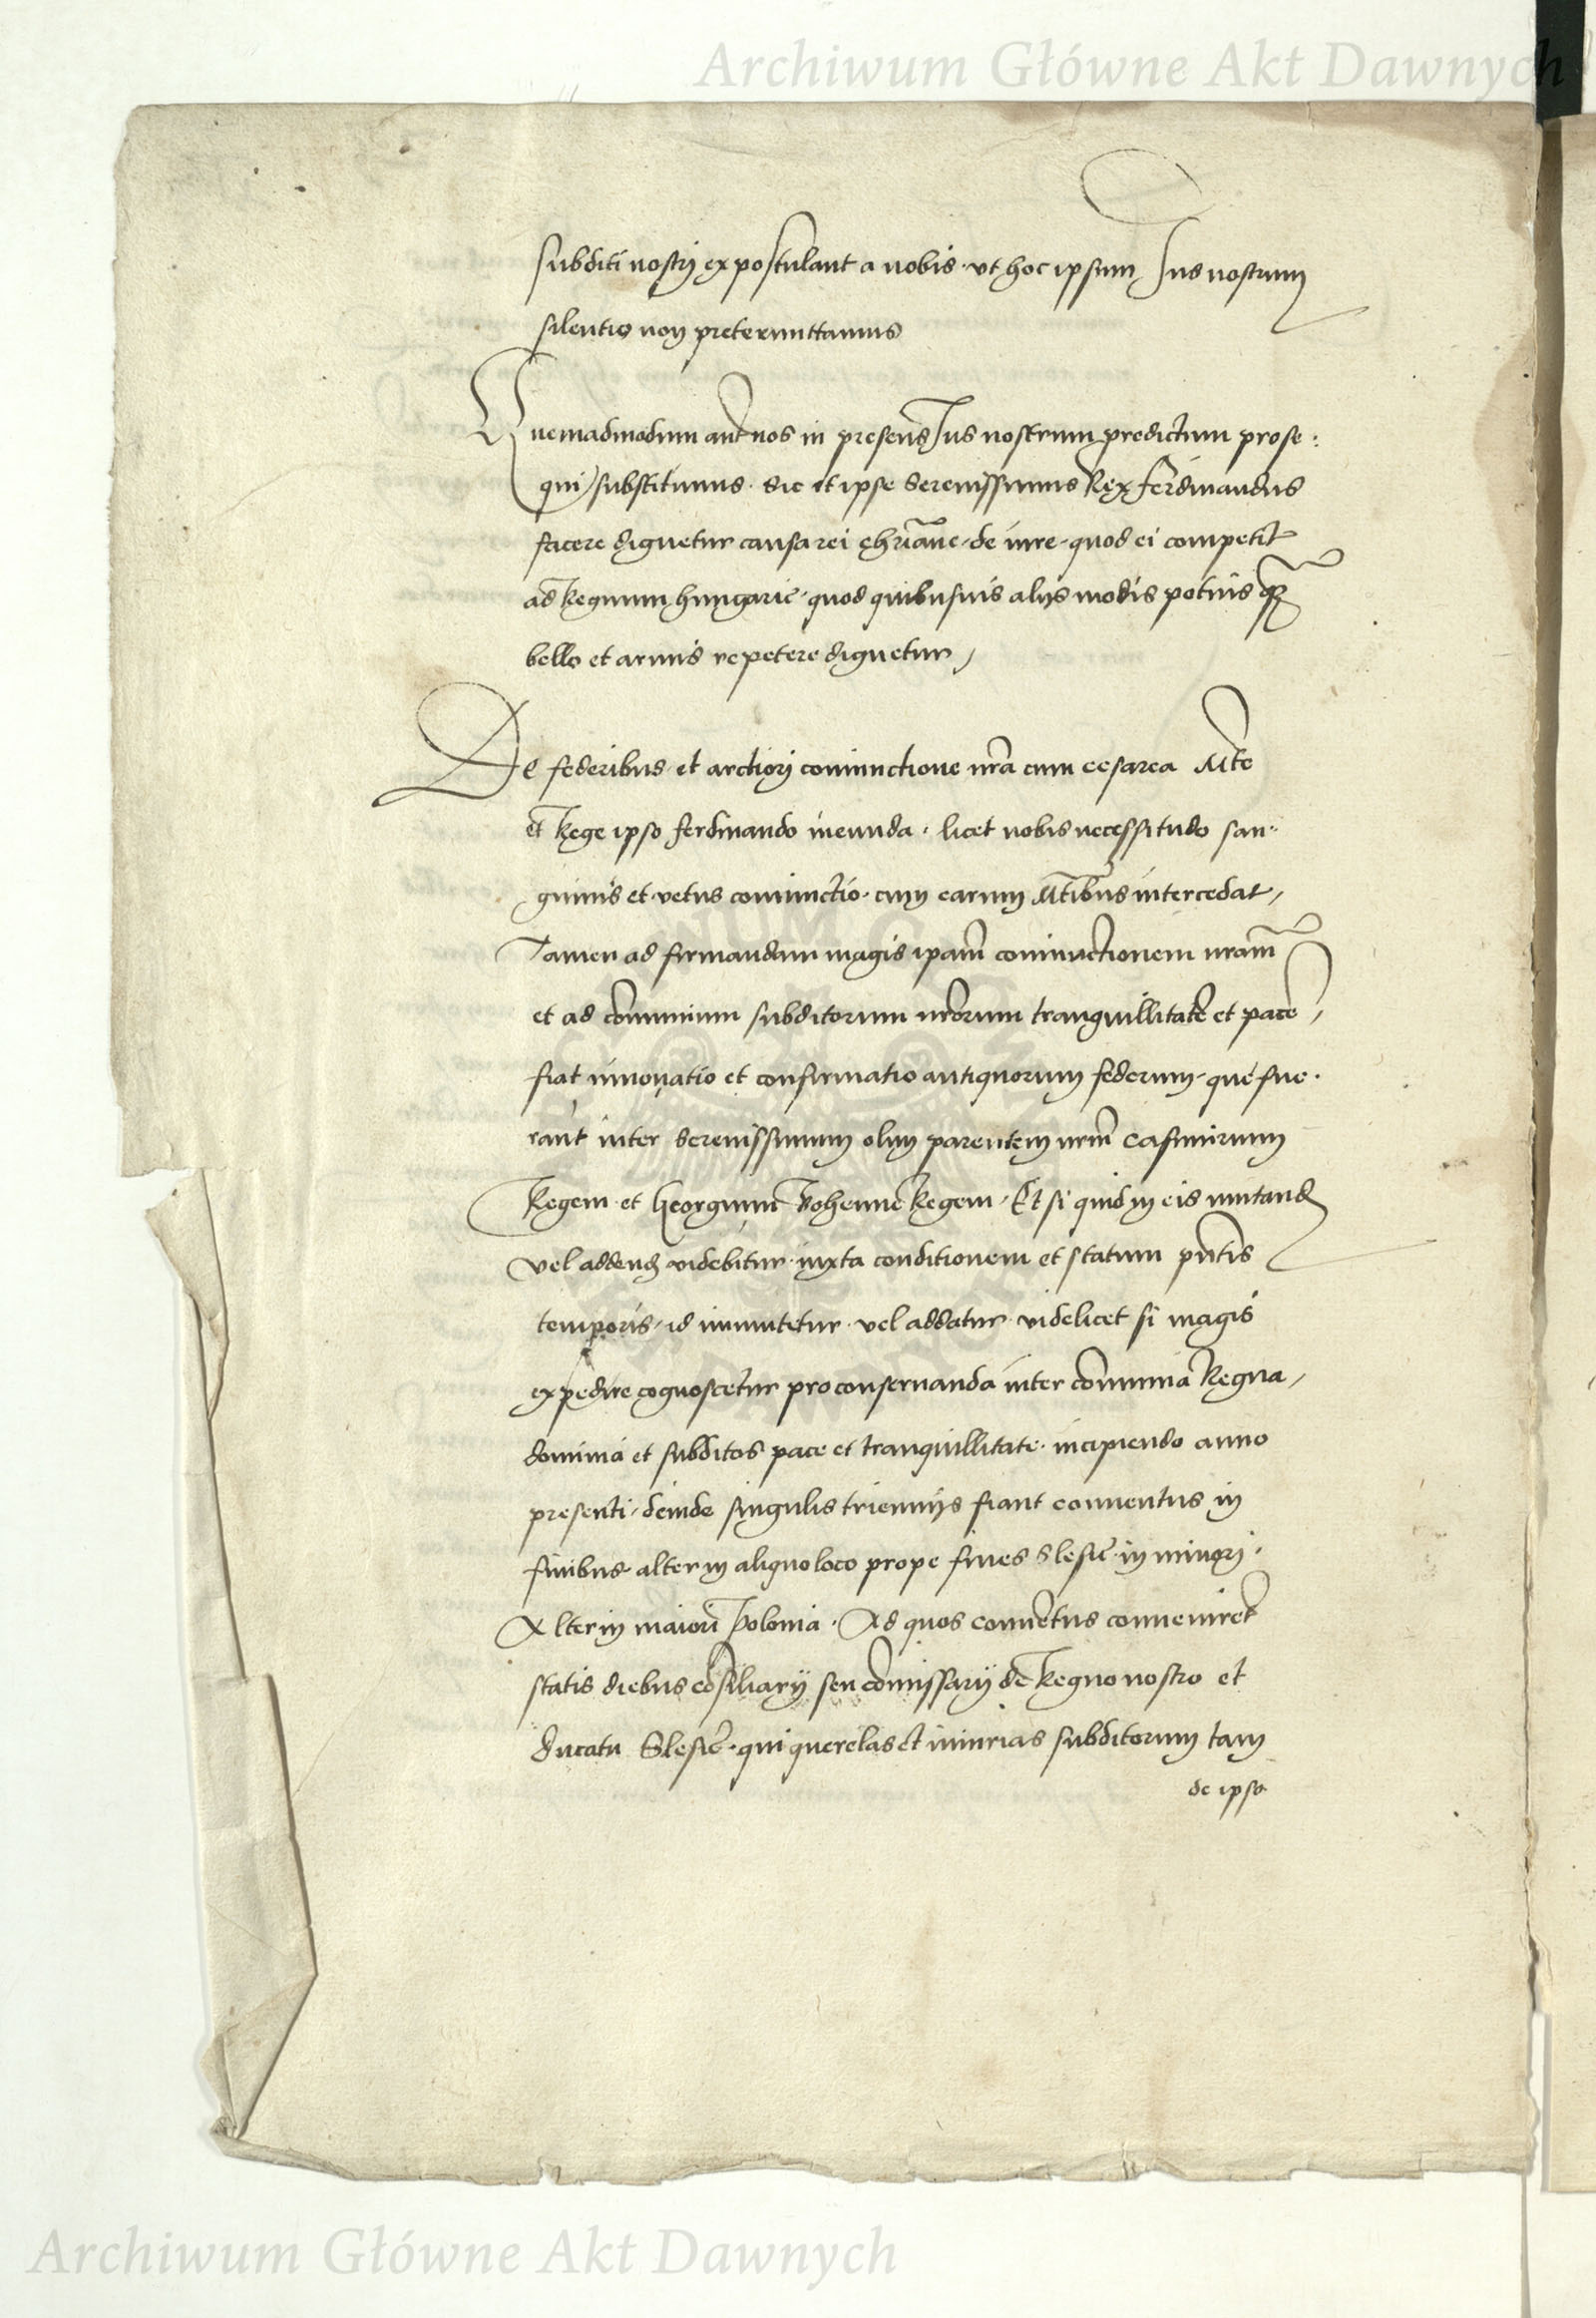 Archiwum Główne Akt Dawnych
subditi nostrj expostulant a nobis · vt hoc ipsum Jus nostrum
silentio non pretermittamus
Quemadmodum aut nos in presens Jus nostrum predictum prose:
qui substitimus · sic et ipse Serenissimus Rex ferdinandus
facere dignetur causa rei chriane · de iure · quod ei competit
ad Regnum hungarie · quod quibusuis alijs modis potius qz
bello et armis repetere dignetur /
De federibus et arctiorj coniunctione nra cum cesarea Mte
et Rege ipso ferdinando ineunda · licet nobis necessitudo san:
guinis et vetus coniunctio · cum earum Mtibus intercedat /
Tamen ad firmandam magis ipam coniunctionem nram
et ad comunium subditorum nrorum tranquillitate et pace /
fiat innouatio et confirmatio antiquorum federum · que fue ·
rant inter Serenissimum olim parentem nrm Casimirum
Regem et Georgium Bohemie Regem · Et si quid in eis mutand
vel addend videbitur · iuxta conditionem et statum pntis
temporis / id immutetur · vel addatur · videlicet si magis
expedire cognoscetur pro conseruanda inter comunia Regna /
dominia et subditos pace et tranquillitate · incipiendo anno
presenti / deinde singulis triennijs fiant conuentus in
finibus alter in aliquo loco prope fines Slesie · in minorj ·
Alter in maiori Polonia · Ad quos conuetus conueniret
statis diebus cosiliarij seu comissarij de Regno nostro et
ducatu Slesie · qui querelas et iniurias subditorum tam
de ipso
Archiwum Główne Akt Dawnych